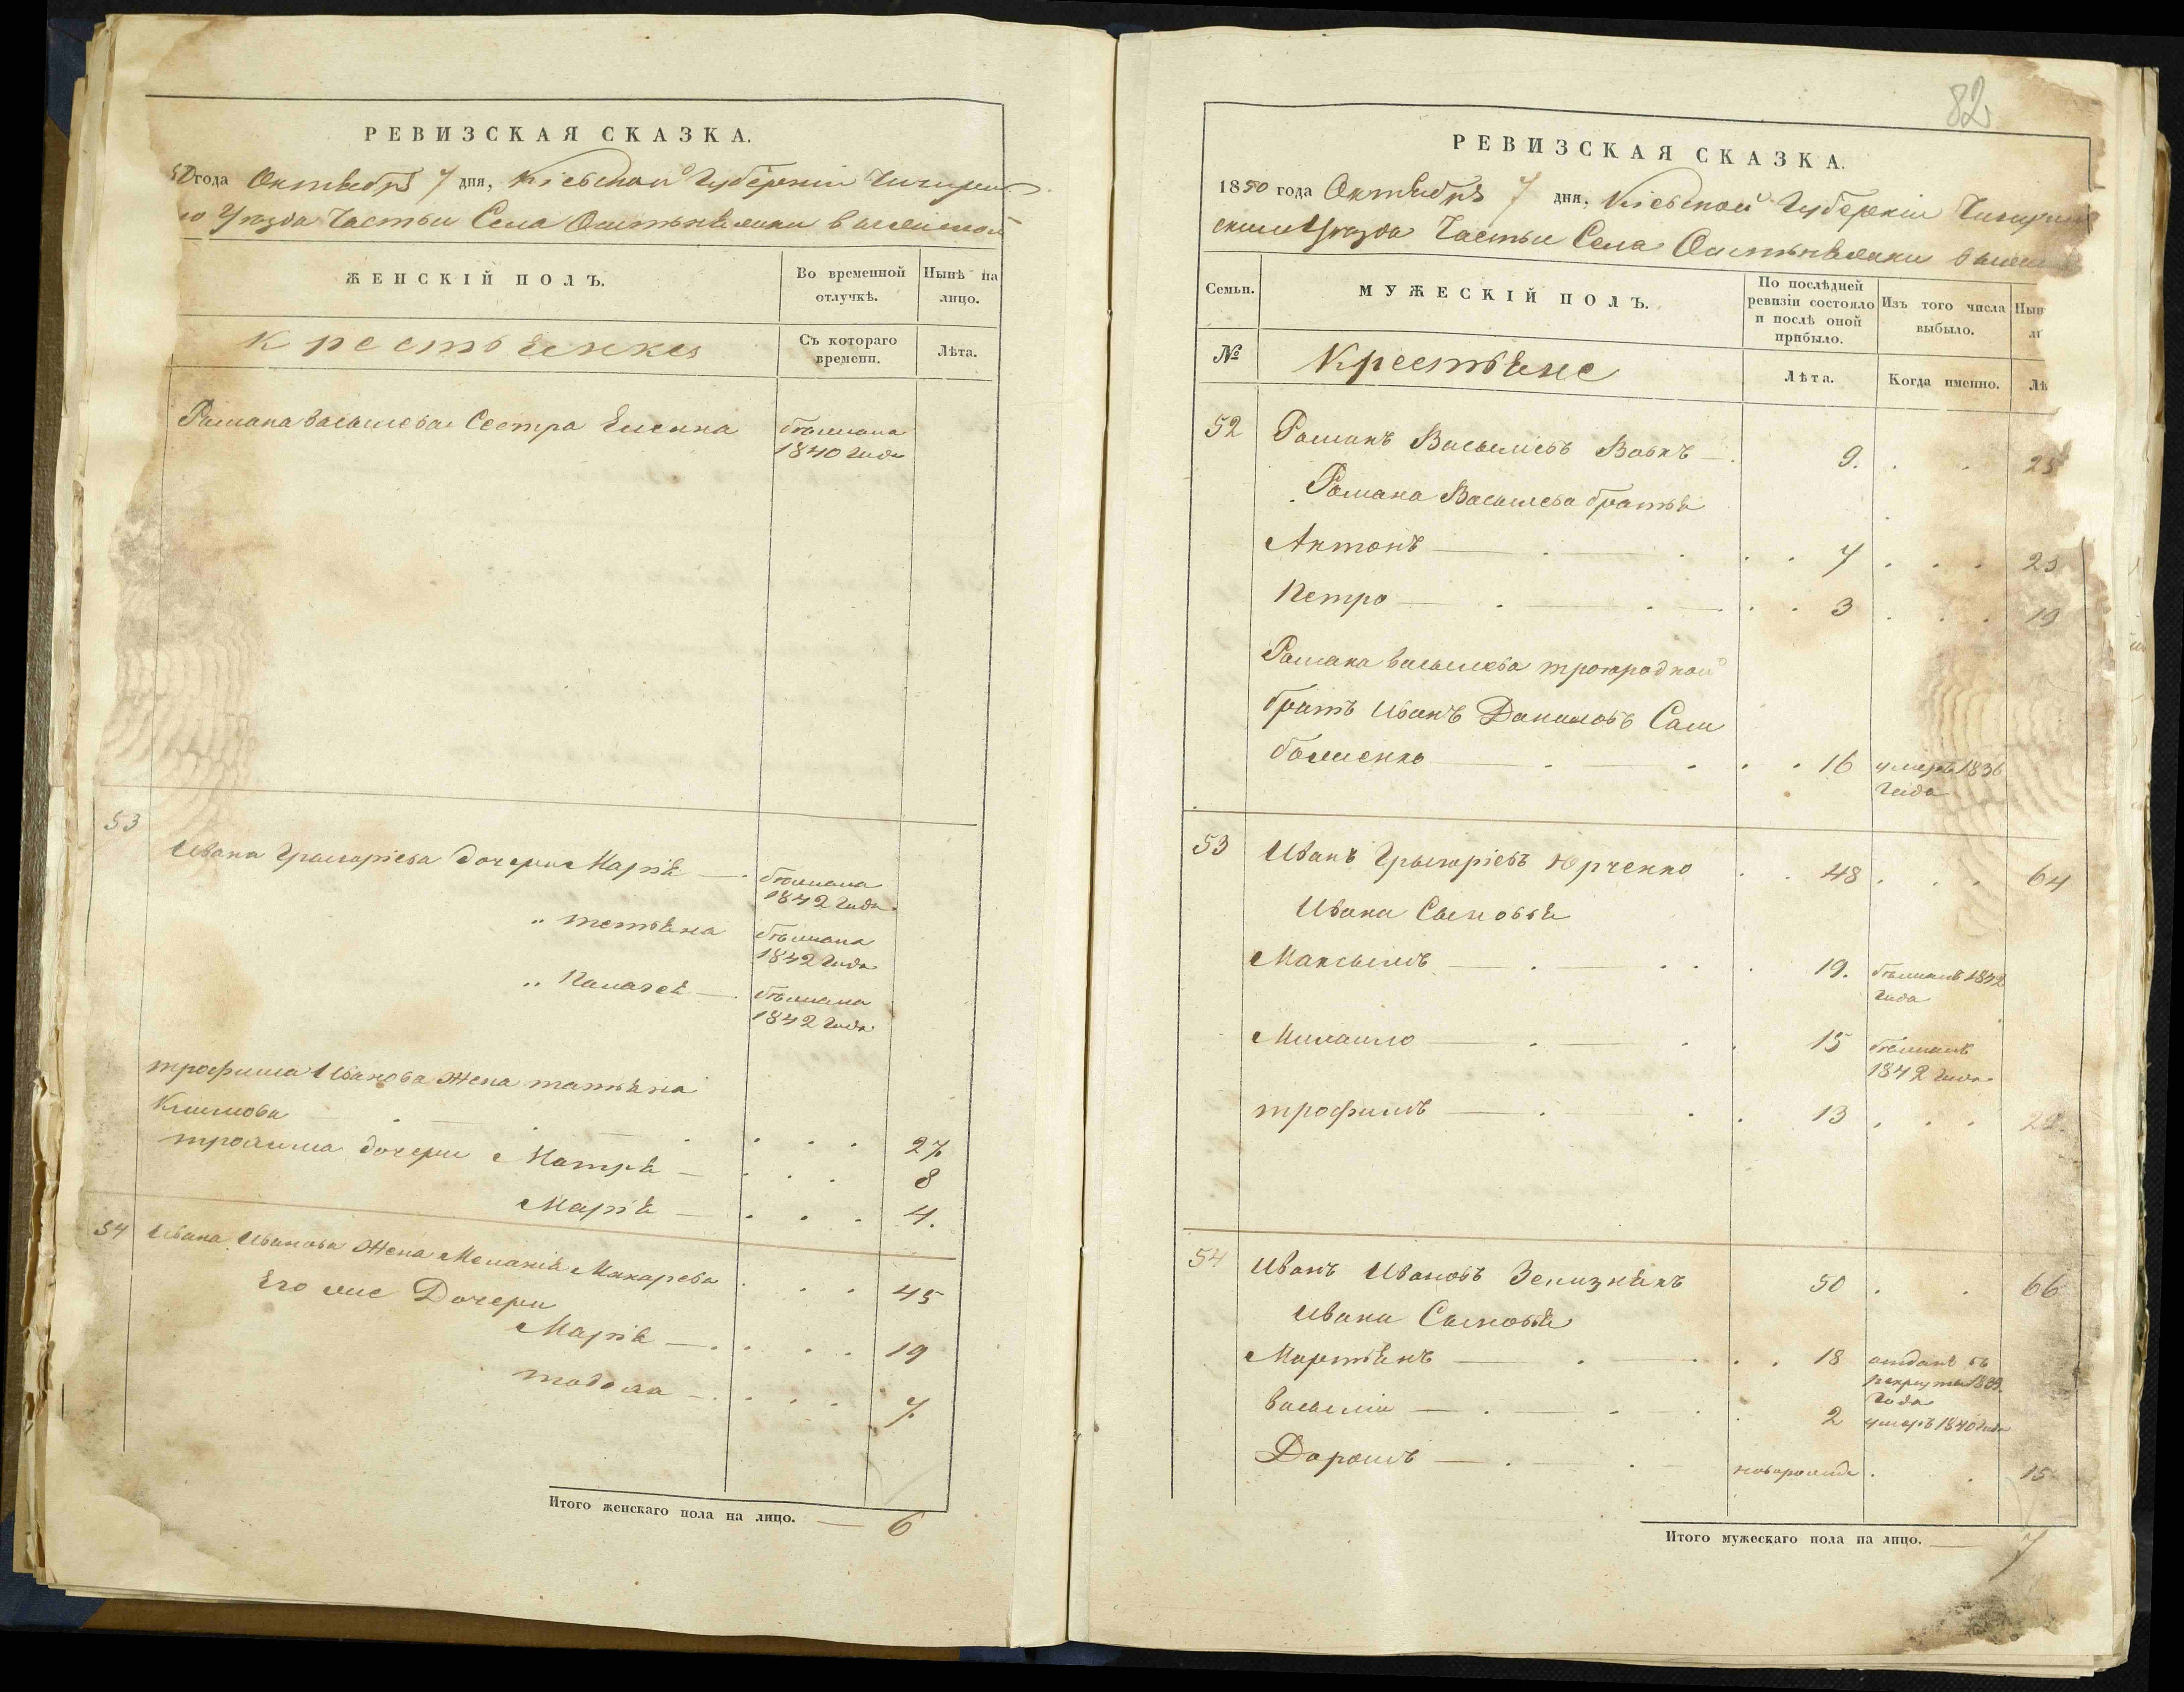 РЕВИЗСКАЯ СКАЗКА.
50 года Октября 7 дня, Кіевской Губерніи Чигирин
го Уезда Части Села
ЖЕНСКІЙ ПОЛЪ.
Во временной отлучкѣ.
Нынѣ на лицо.
Крестьянки
Съ котораго времени.
Лѣта.
Романа Васильева Сестра Елена
1840 года
53
Ивана Григоріева дочери Марія —
1842 года
„ Тетьяна
1842 года
„ Палагея —
1842 года
трофима Иванова жена татьяна
Климова 27
дочери Мотря — 8
Марія — 4.
54 Ивана Иванова Жена Меланія Макарева 45
Его же Дочери
Марія — 19
тодоска — 7
Итого женскаго пола на лицо. — 6
82
РЕВИЗСКАЯ СКАЗКА.
1850 года Октября 7 дня, Кіевской Губерніи Чигирин
скаго Уезда Части Села
Семьи.
МУЖЕСКІЙ ПОЛЪ.
По послѣдней ревизіи состояло и послѣ оной прибыло.
Изъ того числа выбыло.
Нын
№
Крестьяне
Лѣта.
Когда именно.
Лѣ
52 Романъ Васильевъ Вовкъ — 9. 25
Романа Васильева братья
Антонъ — 7 23
Петро — 3 19
Романа Васильева троюродной
братъ Иванъ Даниловъ Сам
16 умеръ 1836
года
53 Иванъ Григоріевъ Юрченко 48 64
Ивана Сыновья
Максымъ — 19. 1842
года
Михайло — 15
1842 года
трофимъ — 13 29
54 Иванъ Ивановъ Зелизнякъ 50 66
Ивана Сыновья
Мартынъ — 18 отданъ въ
рекруты 1839
года
Василій — 2 умеръ 1840 года
Дорошъ — новорожде 15
Итого мужескаго пола на лицо. — 7